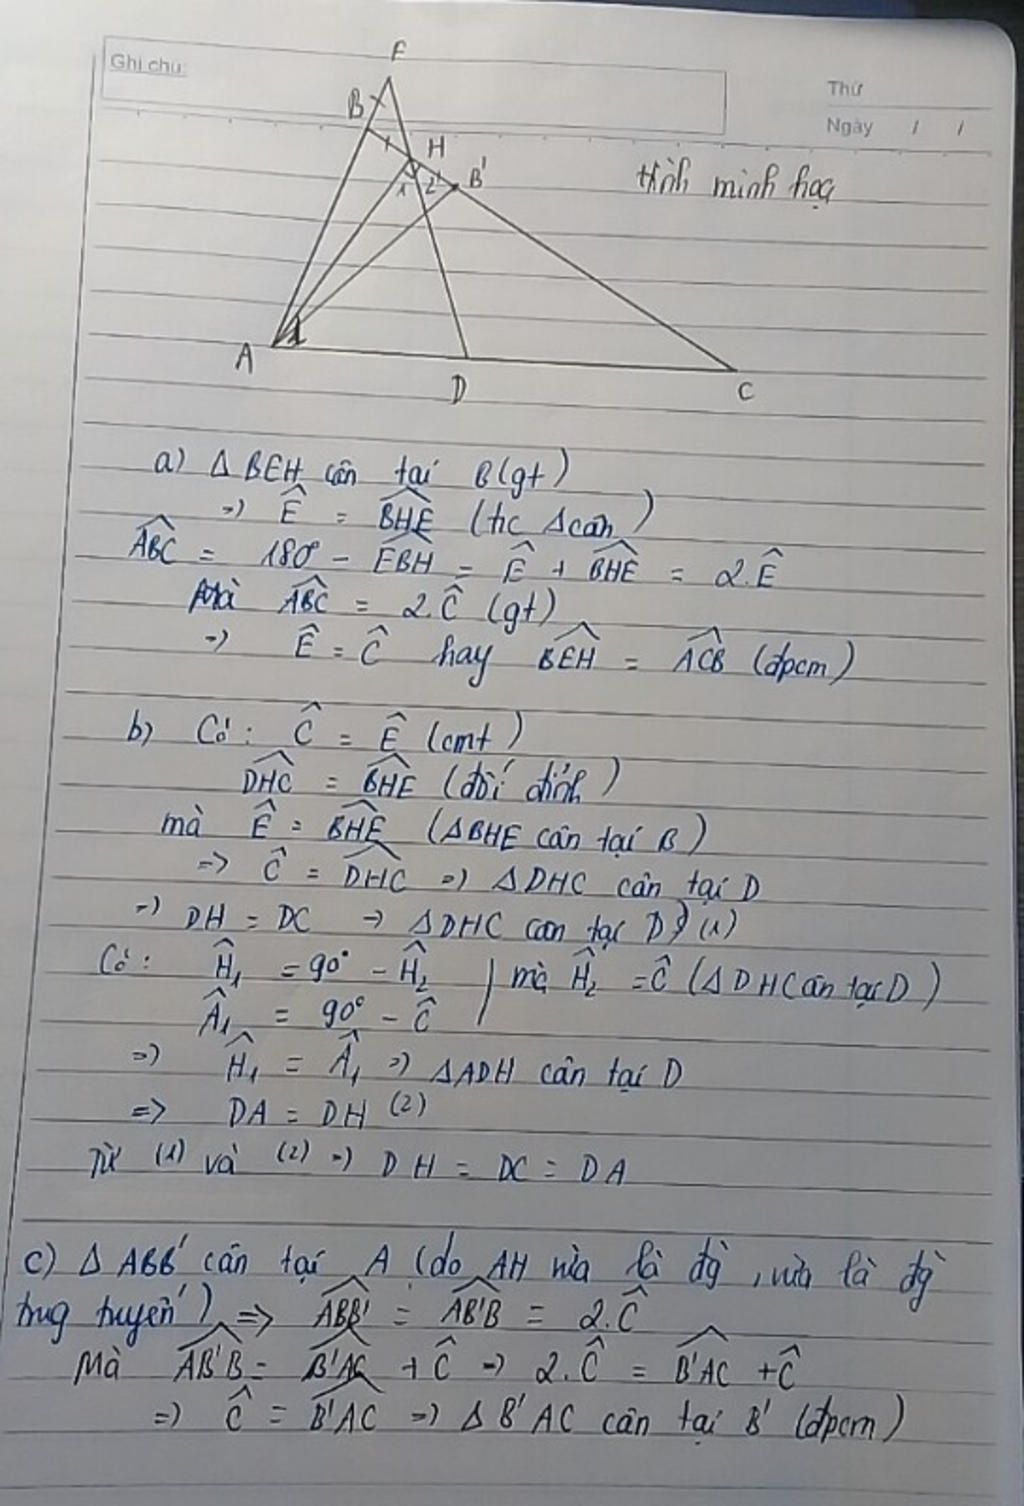 Ghi chú:
Thứ
Ngày / /
E
B
1
H
1 2
B'
hình minh họa
A
1
D
C
a) Δ BEH cân tại B (gt)
=> Ê = BHE (t/c Δ cân)
ABC = 180° - EBH = Ê + BHE = 2.Ê
Mà ABC = 2.Ĉ (gt)
=> Ê = Ĉ hay BEH = ACB (đpcm)
b) Có: Ĉ = Ê (cmt)
DHC = BHE (đối đỉnh)
mà Ê = BHE (ΔBHE cân tại B)
=> Ĉ = DHC => ΔDHC cân tại D
=> DH = DC → ΔDHC cân tại D} (1)
Có: Ĥ₁ = 90° - Ĥ₂ | mà Ĥ₂ = Ĉ (ΔDHC cân tại D)
Â₁ = 90° - Ĉ
=> Ĥ₁ = Â₁ => ΔADH cân tại D
=> DA = DH (2)
Từ (1) và (2) => DH = DC = DA
c) Δ ABB' cân tại A (do AH vừa là đg, vừa là đg
trug tuyến) => ABB' = AB'B = 2.Ĉ
Mà AB'B = B'AC + Ĉ => 2.Ĉ = B'AC + Ĉ
=> Ĉ = B'AC => Δ B'AC cân tại B' (đpcm)